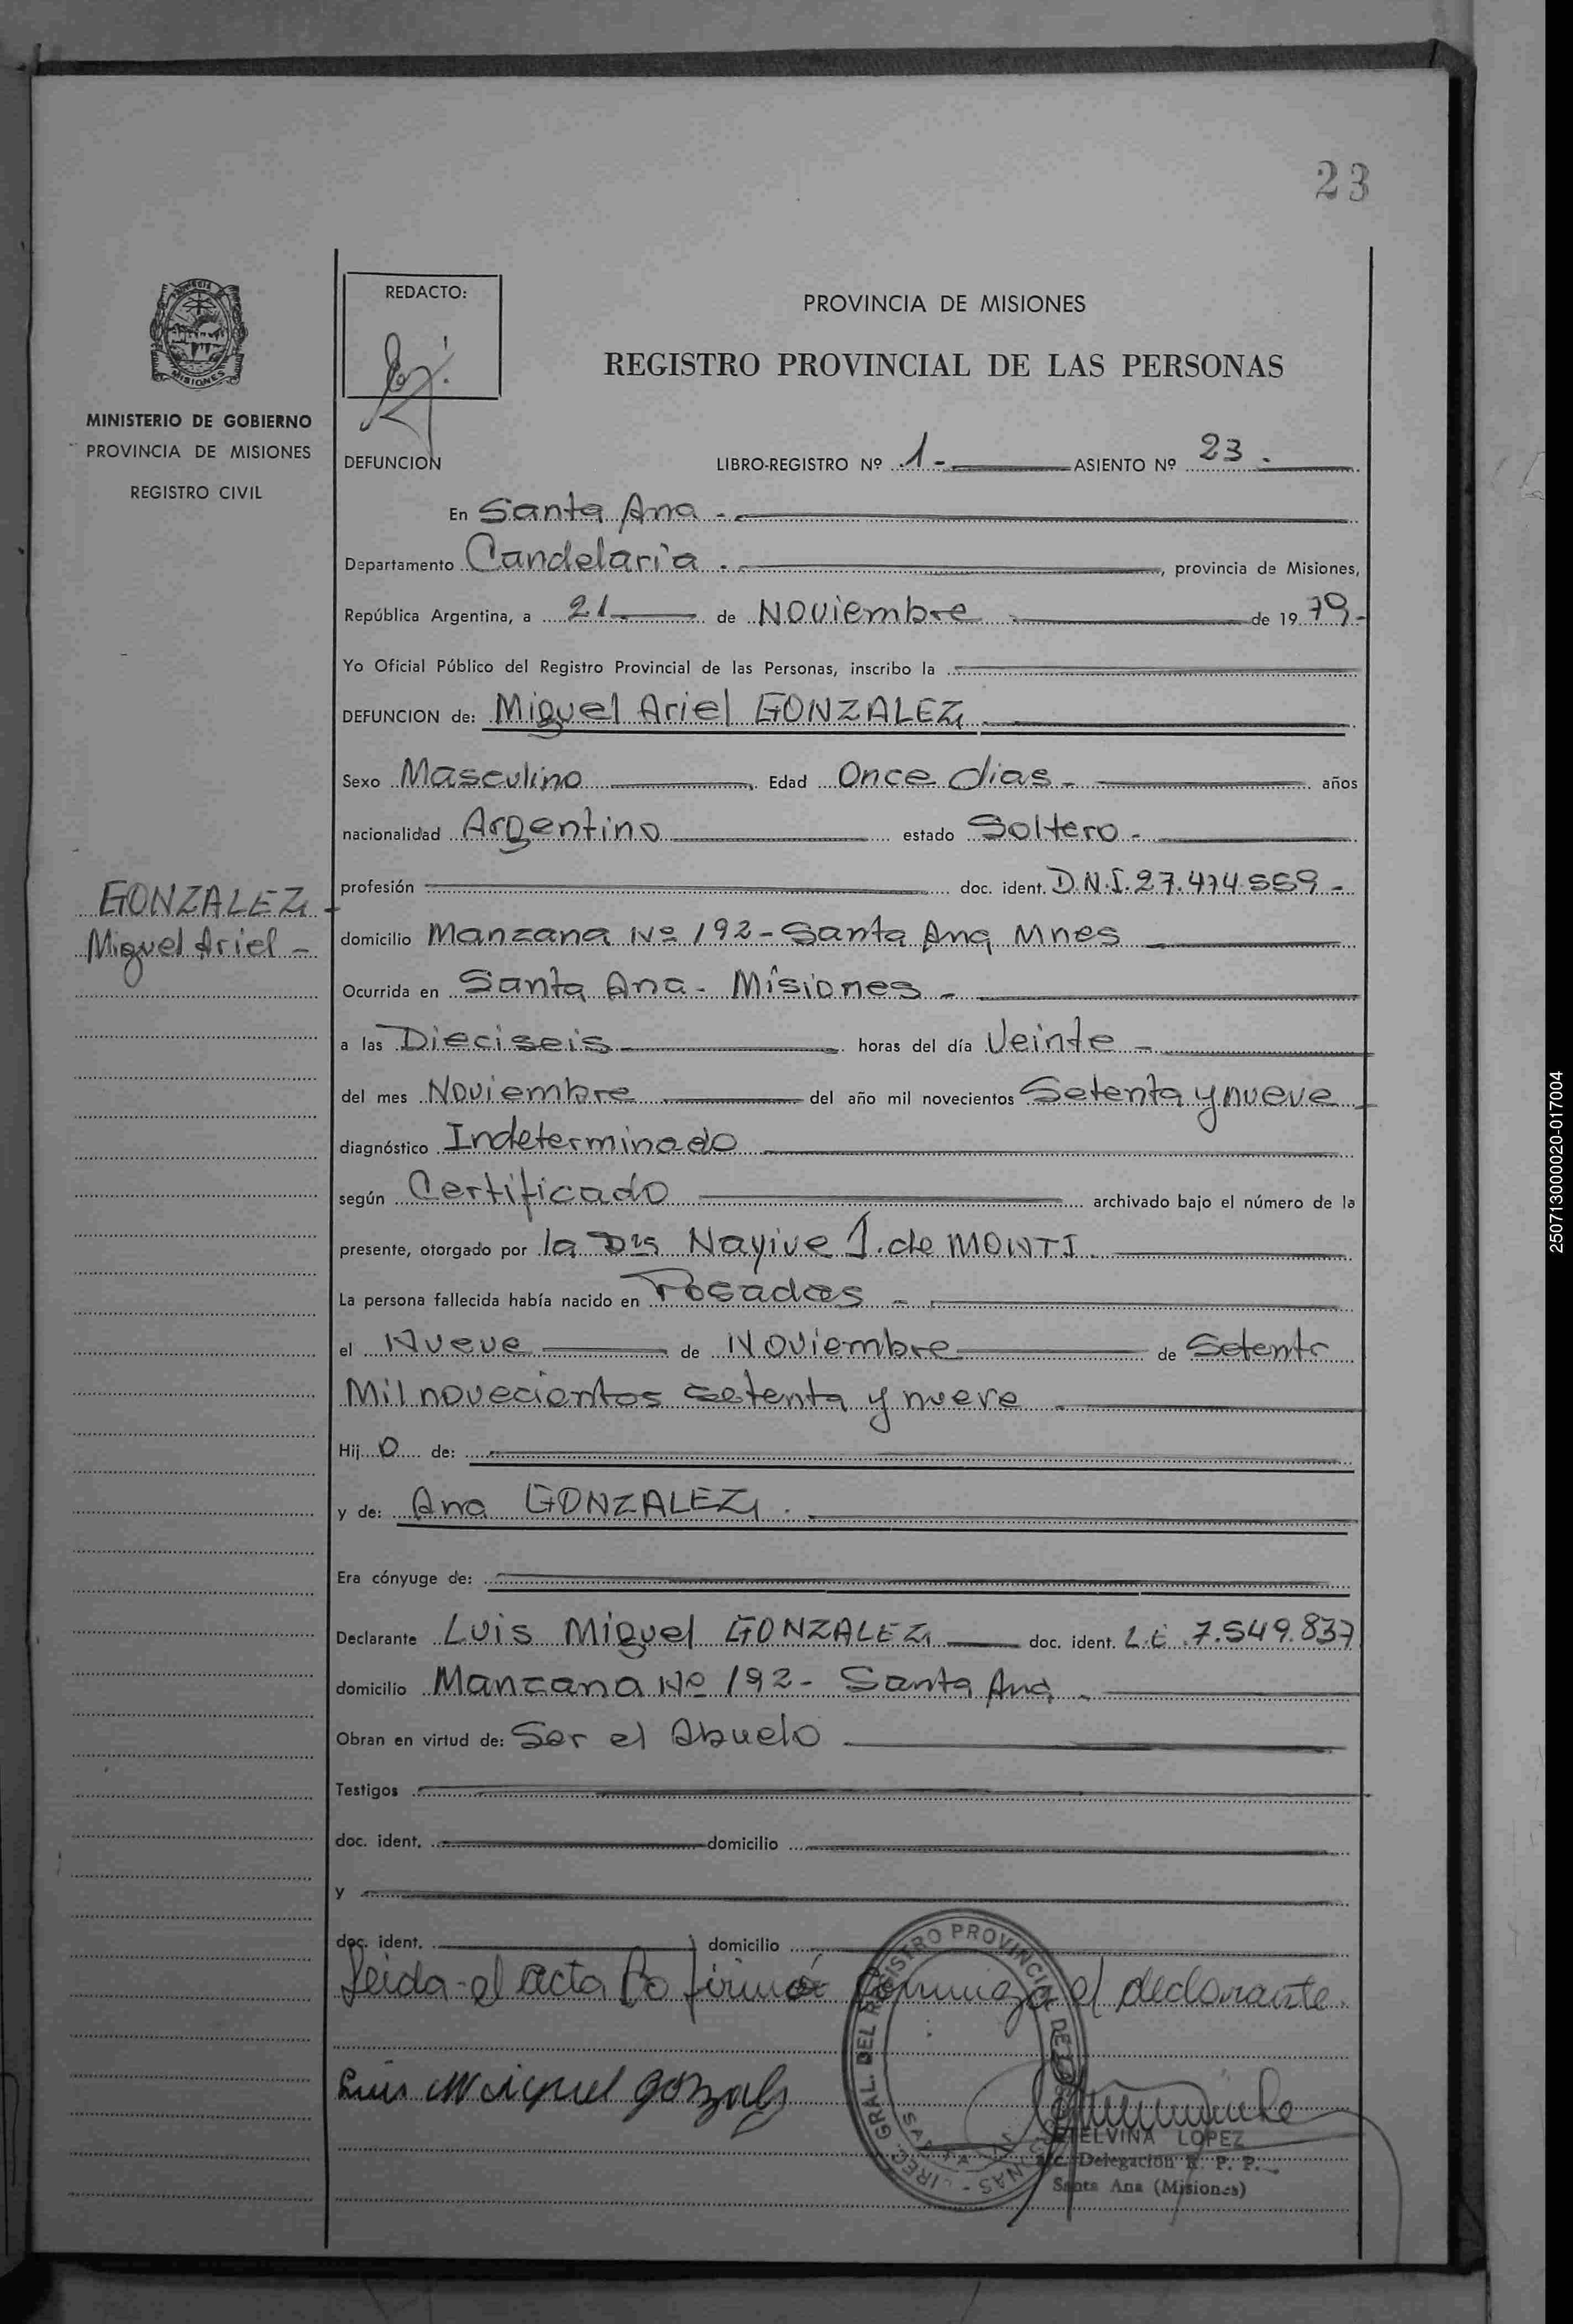 23
REDACTO:
PROVINCIA DE MISIONES
REGISTRO PROVINCIAL DE LAS PERSONAS
MISIONES
MINISTERIO DE GOBIERNO
PROVINCIA DE MISIONES
REGISTRO CIVIL
DEFUNCION LIBRO-REGISTRO Nº 1- ASIENTO Nº 23.
En Santa Ana -
Departamento Candelaria . , provincia de Misiones,
República Argentina, a 21 de Noviembre de 1979-
Yo Oficial Público del Registro Provincial de las Personas, inscribo la
DEFUNCION de: Miguel Ariel GONZALEZ
Sexo Masculino Edad Once dias - años
nacionalidad Argentino estado Soltero -
profesión doc. ident. D.N.I. 27.474.559 -
GONZALEZ -
Miguel Ariel -
domicilio Manzana Nº 192 - Santa Ana Mnes
Ocurrida en Santa Ana - Misiones -
a las Dieciseis - horas del día Veinte -
del mes Noviembre del año mil novecientos Setenta y nueve -
diagnóstico Indeterminado
según Certificado archivado bajo el número de la
presente, otorgado por la Dra Nayive J. de MONTI
La persona fallecida había nacido en Posadas -
el Nueve de Noviembre de Setenta
Mil novecientos setenta y nueve
Hijo de:
y de: Ana GONZALEZ .
Era cónyuge de:
Declarante Luis Miguel GONZALEZ doc. ident. L.E. 7.549.837
domicilio Manzana Nº 192 - Santa Ana -
Obran en virtud de: Ser el Abuelo
Testigos
doc. ident. domicilio
y
doc. ident. domicilio
Leida el acta la firmó conmigo el declarante.
Luis Miguel Gonzalez
GRAL. DEL REGISTRO PROVINCIAL DE
ETELVINA LOPEZ
Delegación R. P. P.
Santa Ana (Misiones)
250713000020-017004